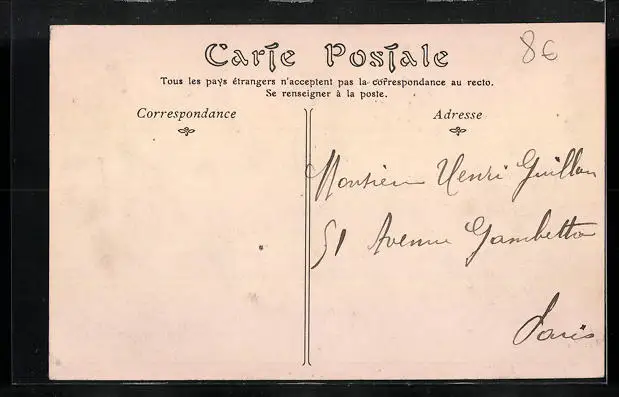 Carte Postale
8€
Tous les pays étrangers n'acceptent pas la correspondance au recto.
Se renseigner à la poste.
Correspondance
Adresse
Monsieur Henri Guillou
51 Avenue Gambetta
Paris